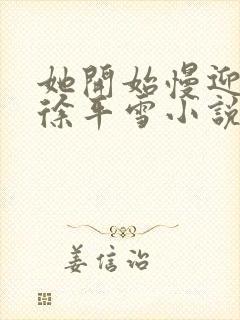 她開始慢迎
徐平雪小說
姜信诒